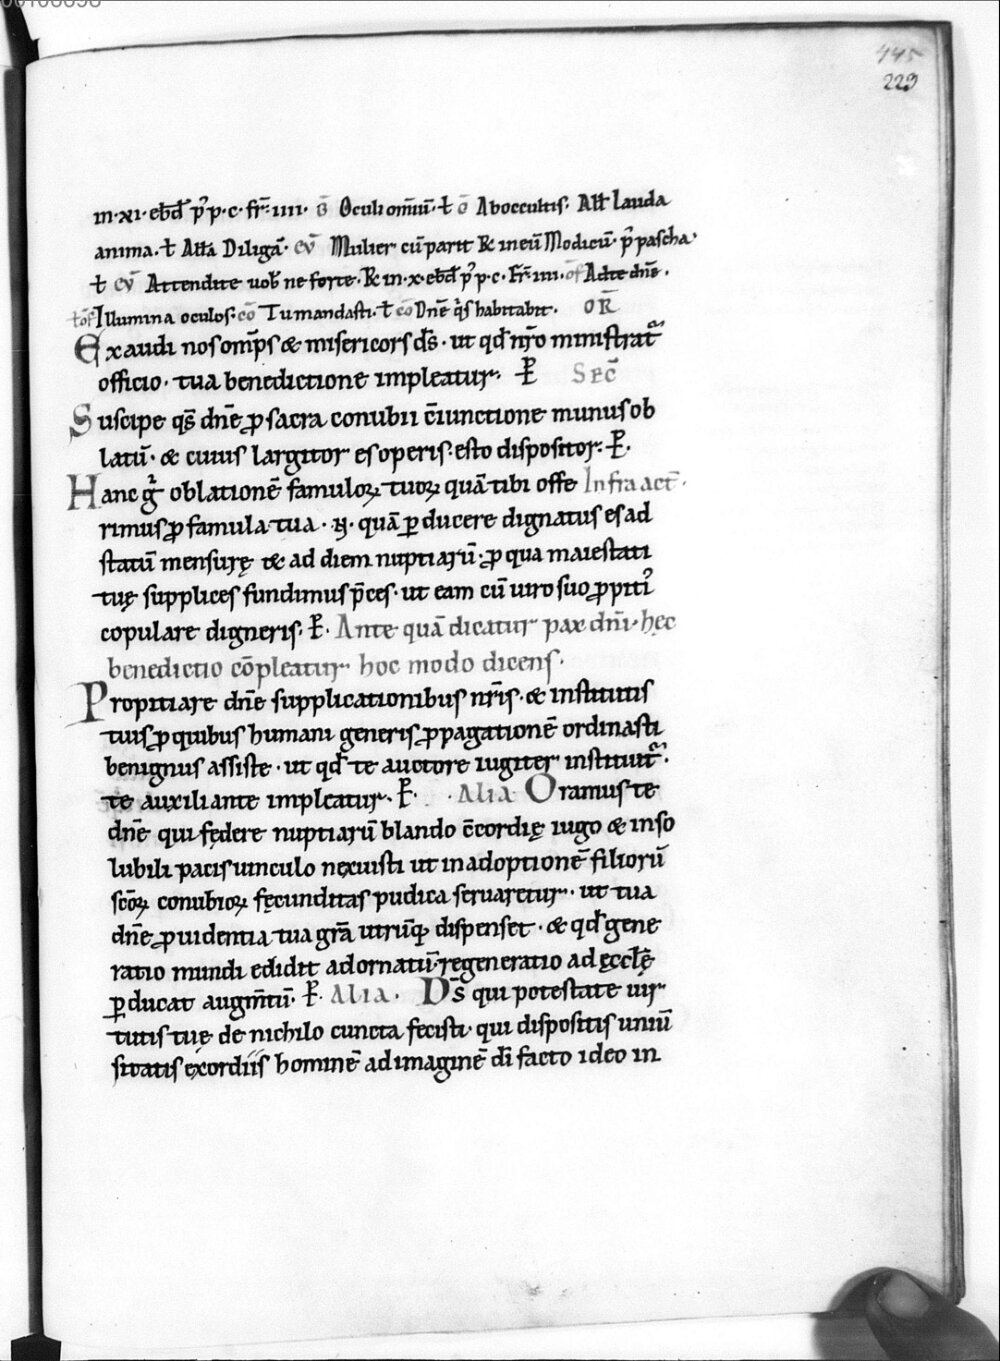 445
223
in·xi·ebđ p̾p·c·fr̄·iiii· ō Oculi om̄iū· ł ō Ab occultis· Al̄l Lauda
anima· ł Al̄la Diligā· eū Mulier cū parit R in eū Modicū· p̾ pascha·
ł eū Attendite uob̄ ne forte· R in·x·ebđ p̾p·c·fr̄·iiii· of Ad te dn̄e·
ł of Illumina oculos· cō Tu mandasti· ł cō Dn̄e q̇s habitabit· OR̄
Exaudi nos om̄ps & misericors d̄s· ut qđ nr̄o ministrat᷑
officio· tua benedictione impleatur· P̱ SEC̄
Suscipe qs̄ dn̄e ꝓ sacra conubii c̄iunctione munus ob
latū· & cuius largitor es operis· esto dispositor· P̱·
Hanc g̊ oblationē famuloꝝ tuoꝝ quā tibi offe Infra act̄·
rimus ꝓ famula tua·N·quā ꝑducere dignatus es ad
statū mensurę & ad diem nuptiarū· ꝓ qua maiestati
tuę supplices fundimus p̄ces· ut eam cū uiro suo ꝓpiti᾽
copulare digneris· P̱· Ante quā dicatur pax dn̄i· hęc
benedictio cōpleatur hoc modo dicens·
Propitiare dn̄e supplicationibus nr̄is· & institutis
tuis ꝓ quibus humani generis ꝓpagationē ordinasti
benignus assiste· ut qđ te auctore iugiter instituit᷑·
te auxiliante impleatur· P̱· Alia Oramus te
dn̄e qui fędere nuptiarū blando c̄cordię iugo & inso
lubili pacis uinculo nexuisti ut in adoptionē filiorū
sc̄oꝝ conubioꝝ fęcunditas pudica seruaretur· ut tua
dn̄e ꝓuidentia tua gr̄a utrūq; dispenset· & qđ gene
ratio mundi edidit ad ornatū· regeneratio ad ęccl̄ę
ꝑducat augm̄tū· P̱· Alia· D̄s qui potestate uir
tutis tuę de nichilo cuncta fecisti· qui dispositis uniū
sitatis exordiis hominē ad imaginē di̅ facto ideo in